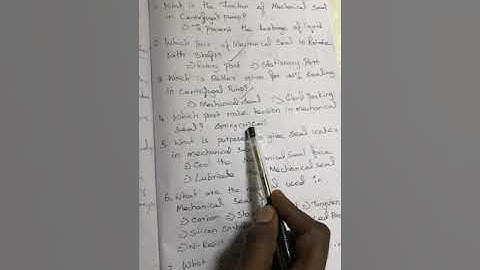 1. What is the function of Mechanical Seal
in Centrifugal Pump?
→ To prevent the leakage of liquid
2. Which part of Mechanical Seal is Rotate
with Shaft?
→ Rotary part → Stationary Part
3. Which is Better option for Sealing
in Centrifugal Pump?
→ Mechanical Seal → Gland Packing
4. Which part make tension in mechanical
Seal? Spring
5. What is purpose give Seal water
in mechanical
→ Cool the Mechanical Seal face
→ Lubricate Mechanical Seal
6. What are the used in
Mechanical Sea
→ Carbon → Sta → Tungsten
→ Silicon Carb
→ N-Resi
7. What